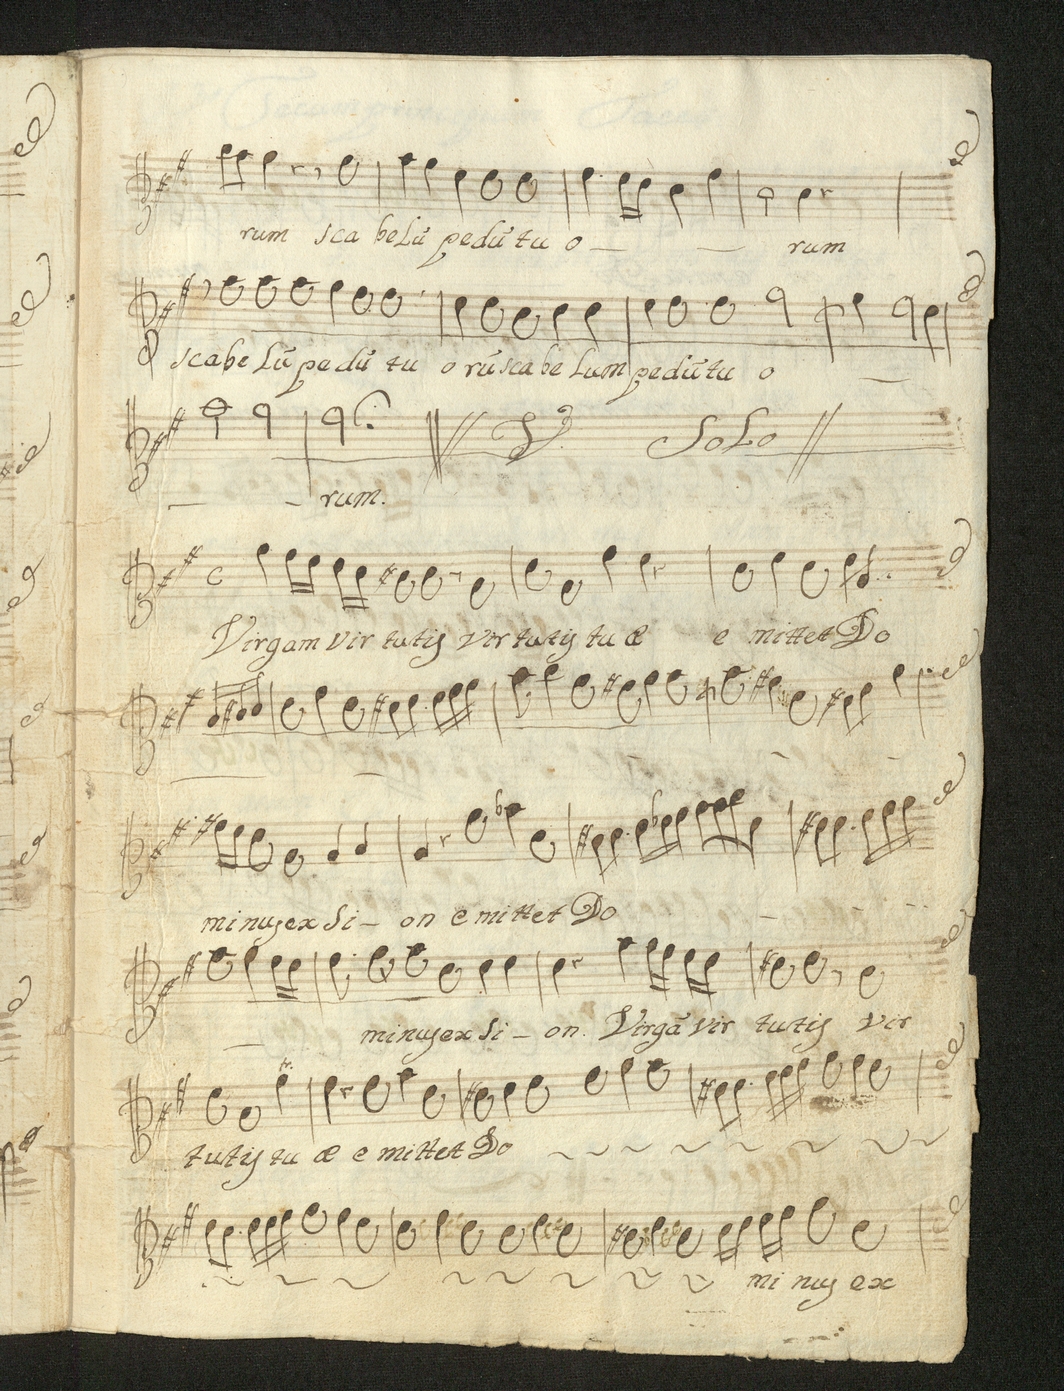 rum sca belū pedū tu o rum
scabe lū pe dū tu o rū sca be lum pedū tu o
V Solo
rum.
Virgam vir tutis vir tutis tu æ e mittet Do
minus ex Si on e mittet Do
minus ex Si on. Virgā vir tutis vir
tr.
tutis tu æ e mittet Do
mi nus ex